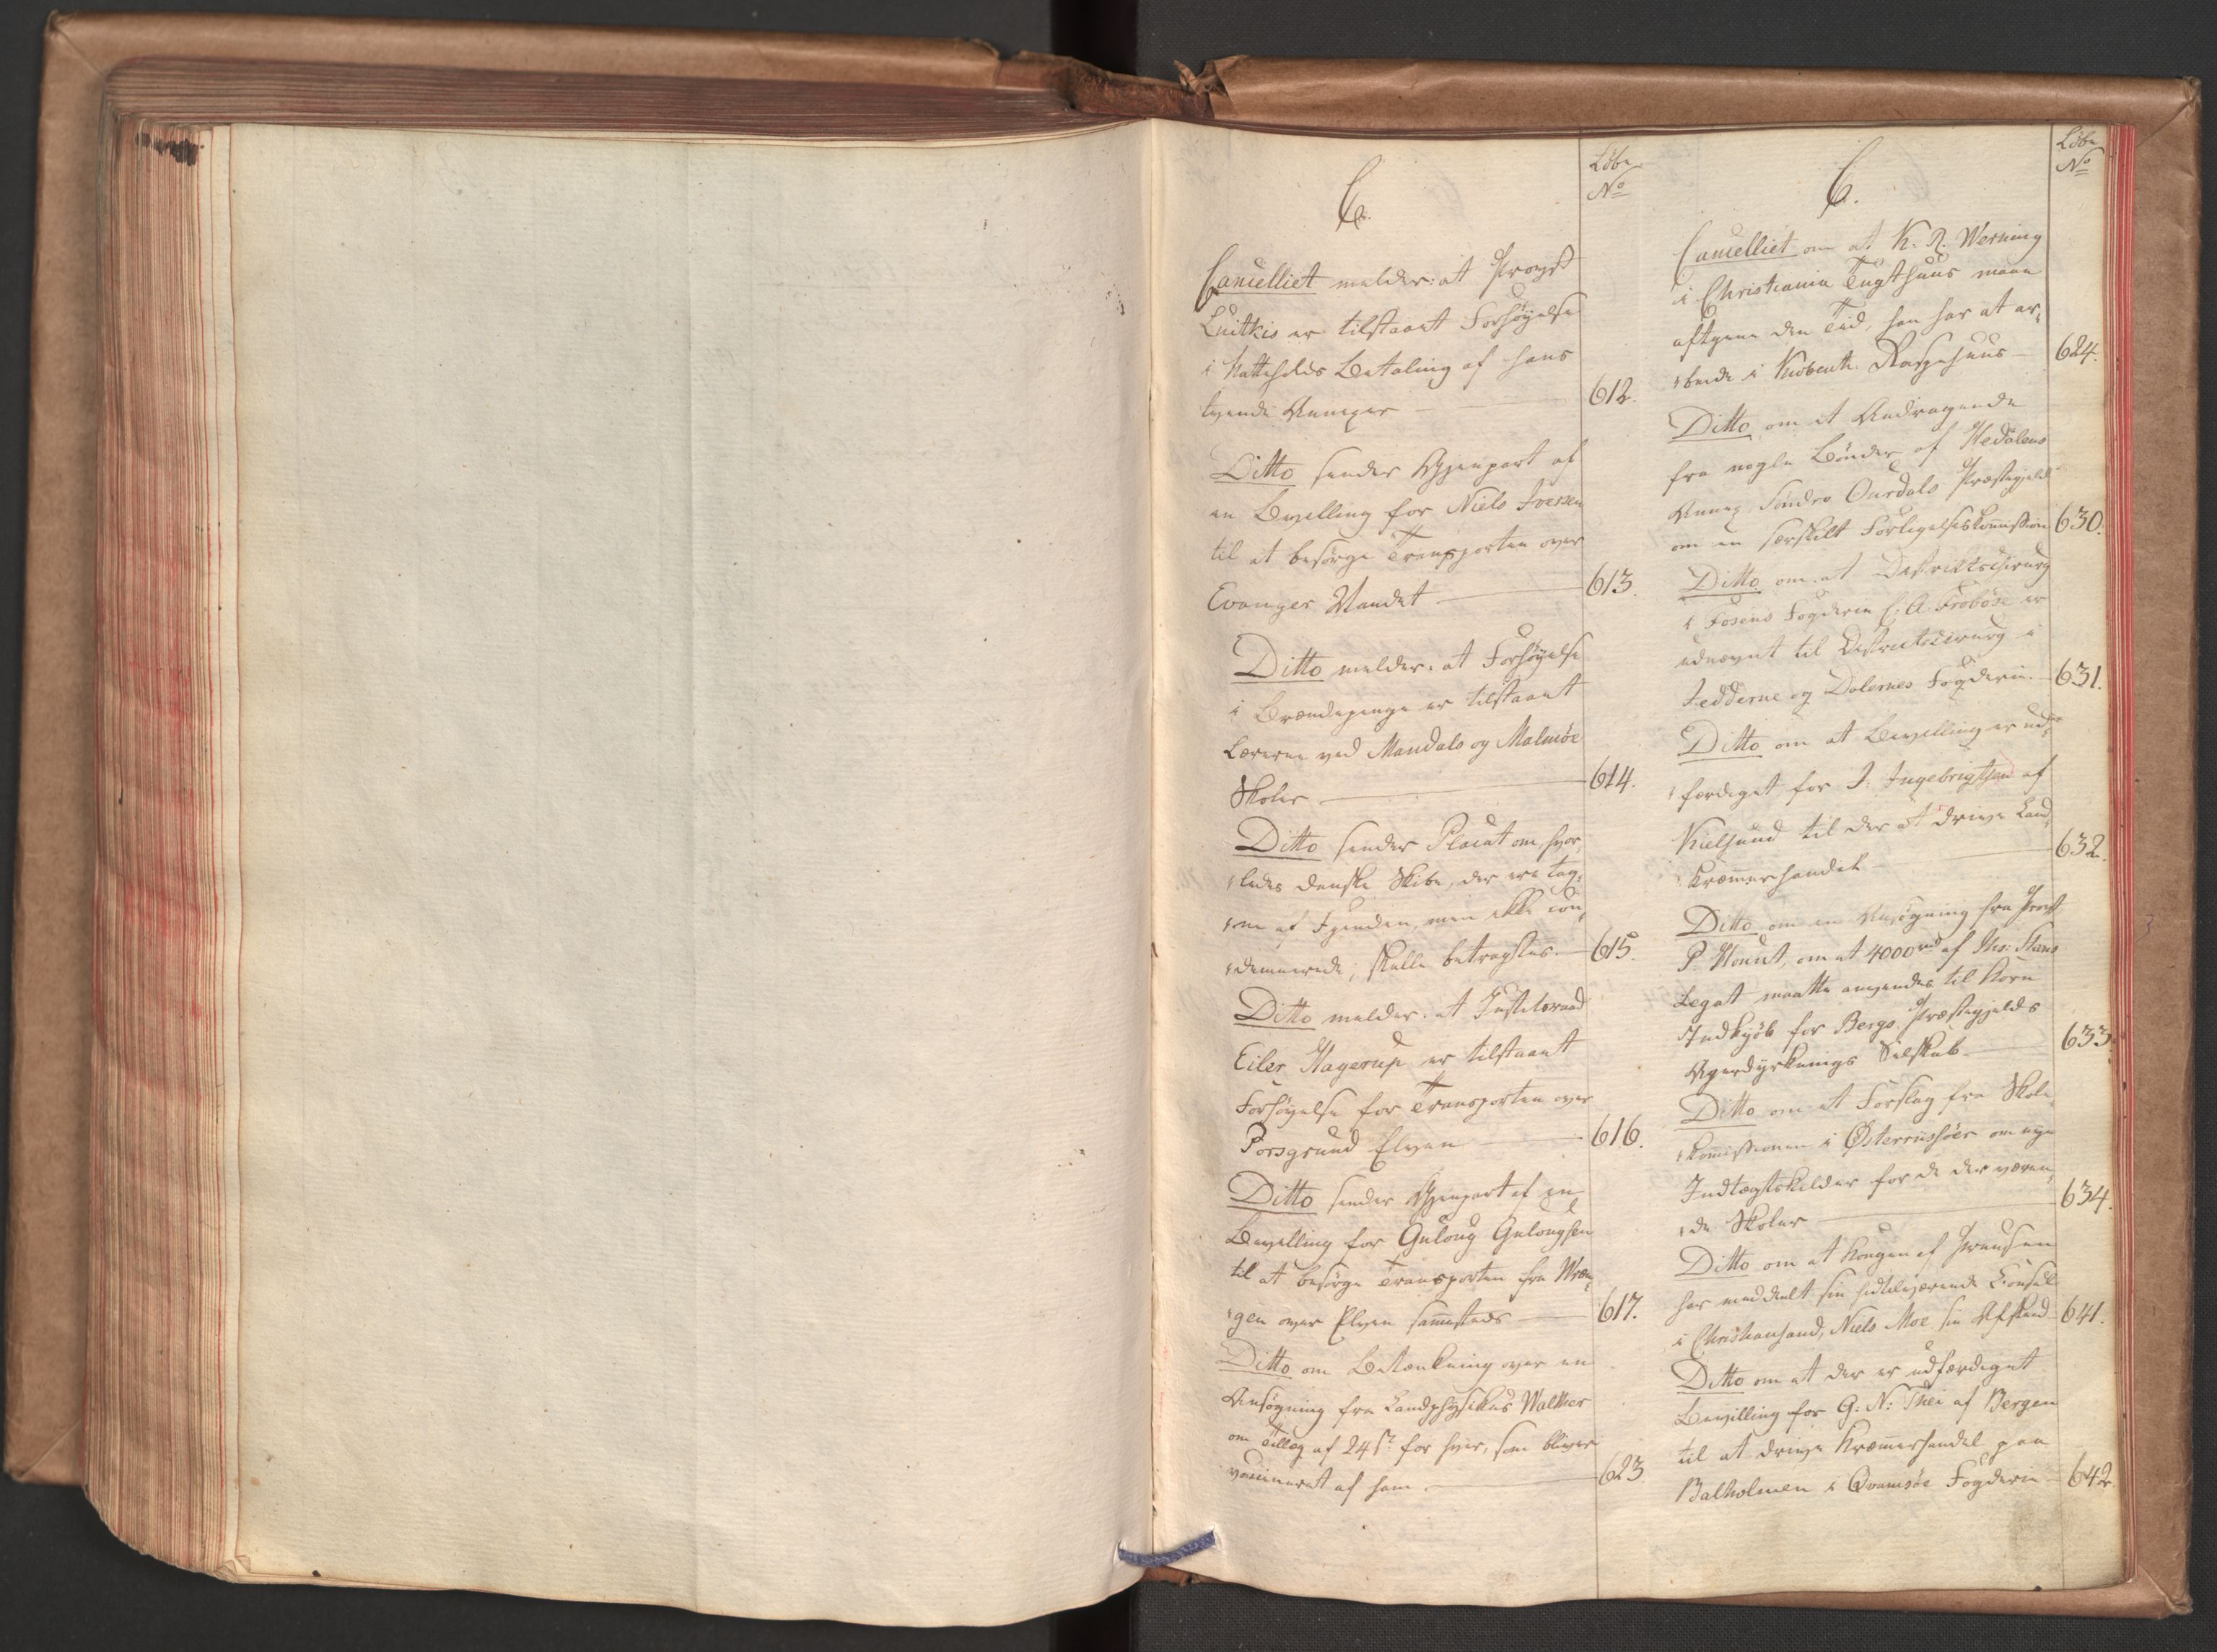 C.
Løbe
No
Cancelliet melder: at Provst
er tilstaaet Forhøyelse
i Betaling af hans
tvende Annexer — 612.
Ditto sender Gjenpart af
en Bevilling for Niels Iversen
til at besørge Transporten over
Evanger Vandet — 613.
Ditto melder: at Forhøyelse
i Brændepenge er tilstaaet
Lærerne ved Mandals og Malmøe
Skoler — 614.
Ditto sender Placat om, hvor-
ledes danske Skibe, der ere tag-
ne af Fjenden, men ikke con-
demnerede, skulle betragtes. — 615.
Ditto melder: at Justitsraad
Eiler Hagerup er tilstaaet
Forhøyelse for Transporten over
Porsgrund Elven — 616.
Ditto sender Gjenpart af en
Bevilling for Guloug Gulougsen
til at besørge Transporten fra Wræn-
gen over Elven sammesteds — 617.
Ditto om Betænkning over en
Ansøgning fra Landphysikus Walther
om Tillæg af 24 s for hver, som bliver
vaccineret af ham. — 623
C.
Løbe
No
Cancelliet om at K. R. Werning
i Christiania Tugthuus maae
aftgene den Tid, han har at ar-
beide i Kiøbenh. Raspehuus — 624.
Ditto om et Andragende
fra nogle Bønder af Hedalens
Annex Søndre Ourdals Præstegjeld
om en særskilt Forligelseskommission 630.
Ditto om at Districtschirurg
i Fosens Fogderie C. A. Frobøse er
udnævnt til Districtschirurg i
Jedderne og Dalernes Fogderie. — 631.
Ditto om at Bevilling er ud-
færdiget for J. Ingebrigtsen af
Kielsund til der at drive Land-
kræmmerhandel — 632.
Ditto om en Ansøgning fra Provst
P. Hount, om at 4000 rd af
Legat maatte anvendes til Korn
Indkjøb for Bergs Præstegjelds
Agerdyrknings Selskab — 633.
Ditto om et Forslag fra Skole-
kommissionen i Østerriisøer om nye
Indtægtskilder for de der væren-
de Skoler — 634.
Ditto om at Kongen af Preussen
har meddelt sin hidtilværende Consul
i Christiansand, Niels Moe sin Afskeed 641.
Ditto om at der er udfærdiget
Bevilling for G. N. Thei af Bergen
til at drive Kræmmerhandel paa
Balholmen i Qvamsøe Fogderie — 642